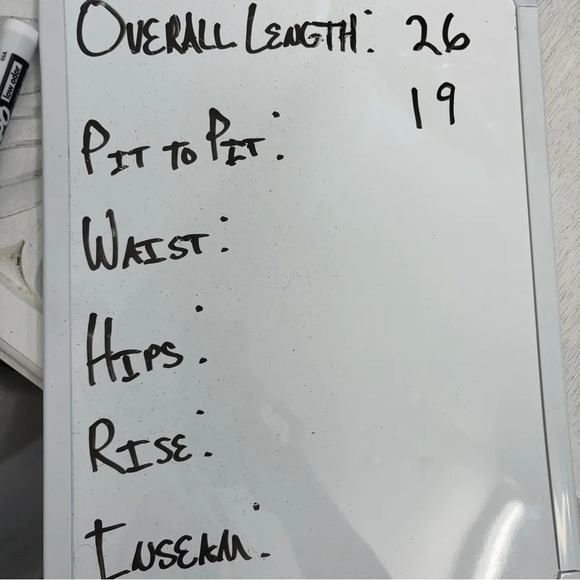 OVERALL LENGTH: 26
PIT TO PIT: 19
WAIST:
HIPS:
RISE:
INSEAM:
low odor
USA